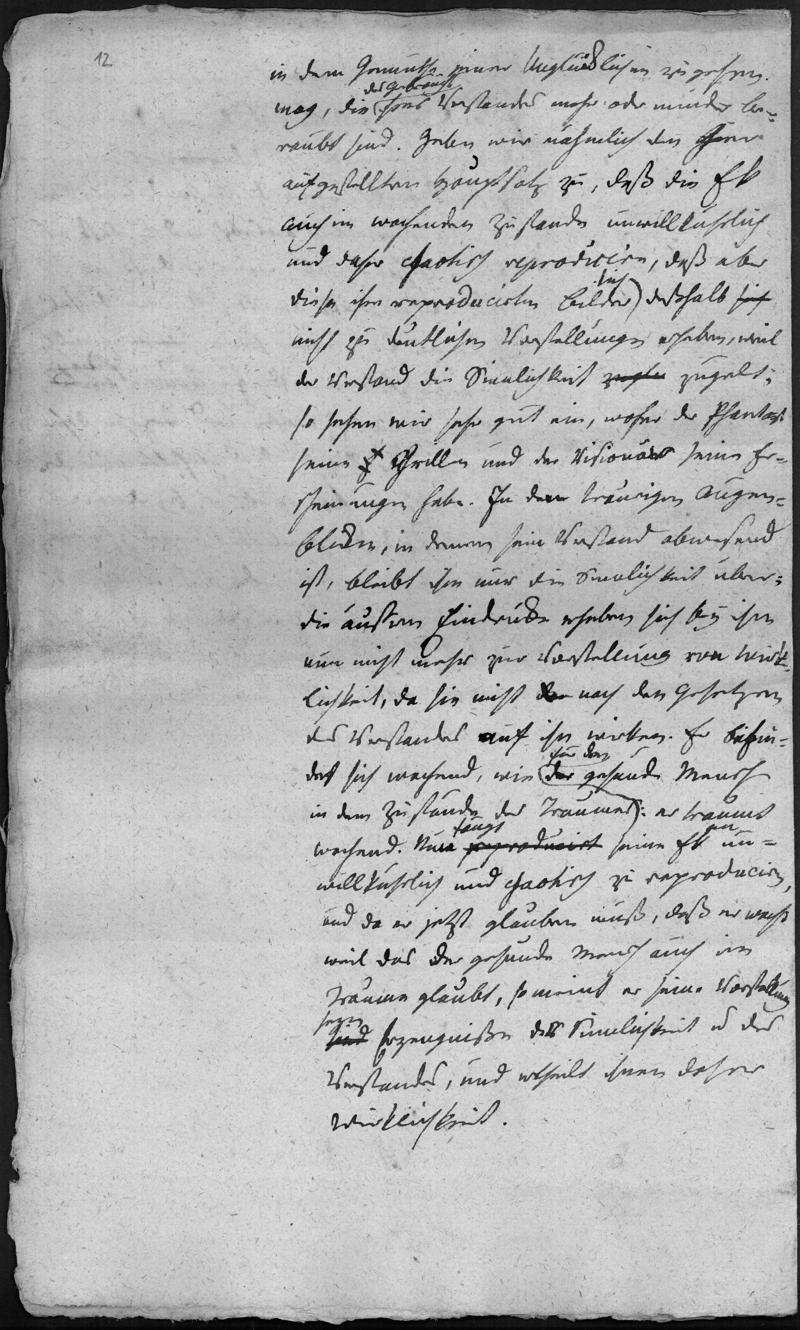 12
in dem Gemüthe jener Unglücklichen vorgehen
mag, die des Gebrauchs ihres Verstandes mehr oder minder be-
raubt sind. Geben wir nähmlich den
aufgestellten Hauptsatz zu, daß die EK
auch im wachenden Zustande unwillkührlich
und daher chaotisch reproducire, daß aber
diese ihre reproducirten Bilder sich deßhalb sich
nicht zu deutlichen Vorstellungen erheben, weil
der Verstand die Sinnlichkeit zügelt;
so sehen wir sehr gut ein, woher der Phantast
seine Grillen und der Visionär seine Er-
scheinungen habe. In den traurigen Augen-
blicken, in denen sein Verstand abwesend
ist, bleibt ihm nur die Sinnlichkeit über;
die äußern Eindrücke erheben sich bey ihm
nun nicht mehr zur Vorstellung von Wirk-
lichkeit, da sie nicht nach den Gesetzen
des Verstandes auf ihn wirken. Er befin-
det sich wachend, wie für den der gesunde Mensch
in dem Zustande des Traumes: er träumt
wachend. Nun fängt reproducirt seine EK an un-
willkührlich und chaotisch zu reproduciren,
und da er jetzt glauben muß, daß er wacht
weil das der gesunde Mensch auch im
Traume glaubt, so meint er seine Vorstellung
seyen sind Erzeugnisse der Sinnlichkeit u des
Verstandes, und ertheilt ihnen daher
Wirklichkeit.